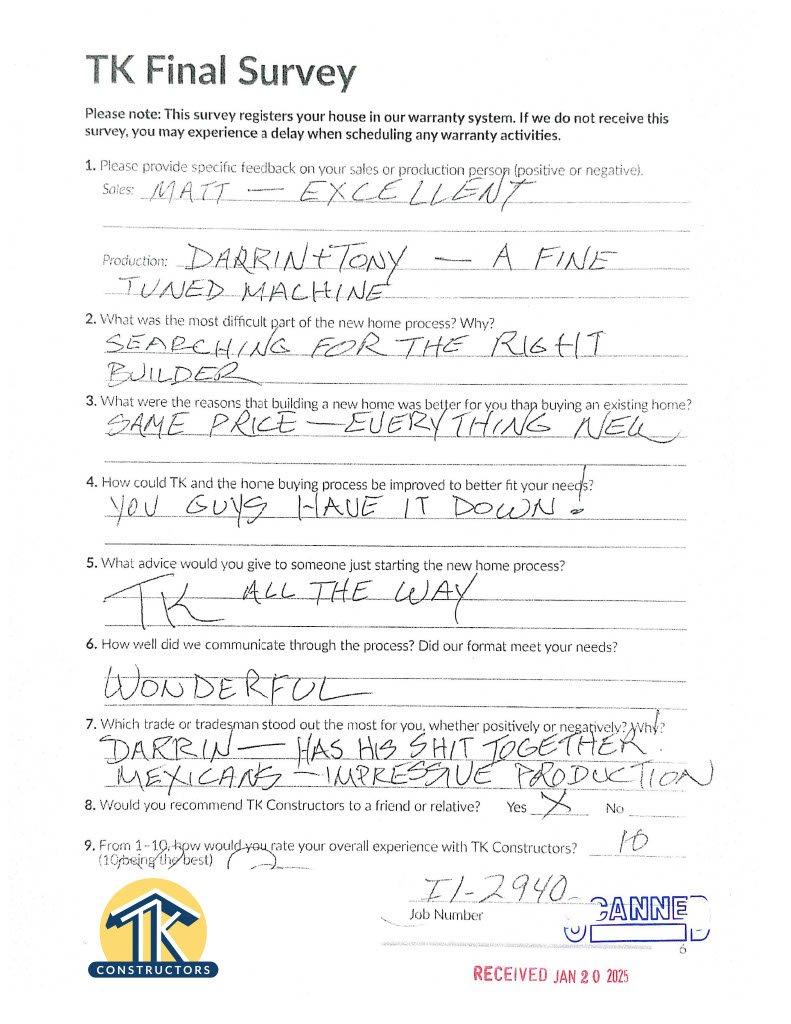 TK Final Survey
Please note: This survey registers your house in our warranty system. If we do not receive this
survey, you may experience a delay when scheduling any warranty activities.
1. Please provide specific feedback on your sales or production person (positive or negative).
Sales: MATT — EXCELLENT
Production: DARRIN + TONY — A FINE
TUNED MACHINE
2. What was the most difficult part of the new home process? Why?
SEARCHING FOR THE RIGHT
BUILDER
3. What were the reasons that building a new home was better for you than buying an existing home?
SAME PRICE — EVERYTHING NEW
4. How could TK and the home buying process be improved to better fit your needs?
YOU GUYS HAVE IT DOWN!
5. What advice would you give to someone just starting the new home process?
TK ALL THE WAY
6. How well did we communicate through the process? Did our format meet your needs?
WONDERFUL
7. Which trade or tradesman stood out the most for you, whether positively or negatively? Why?
DARRIN — HAS HIS SHIT TOGETHER!
MEXICANS — IMPRESSIVE PRODUCTION
8. Would you recommend TK Constructors to a friend or relative? Yes X No
9. From 1-10, how would you rate your overall experience with TK Constructors? 10
(10 being the best)
I1-2940
Job Number
CANNE
6
TK
CONSTRUCTORS
RECEIVED JAN 20 2025